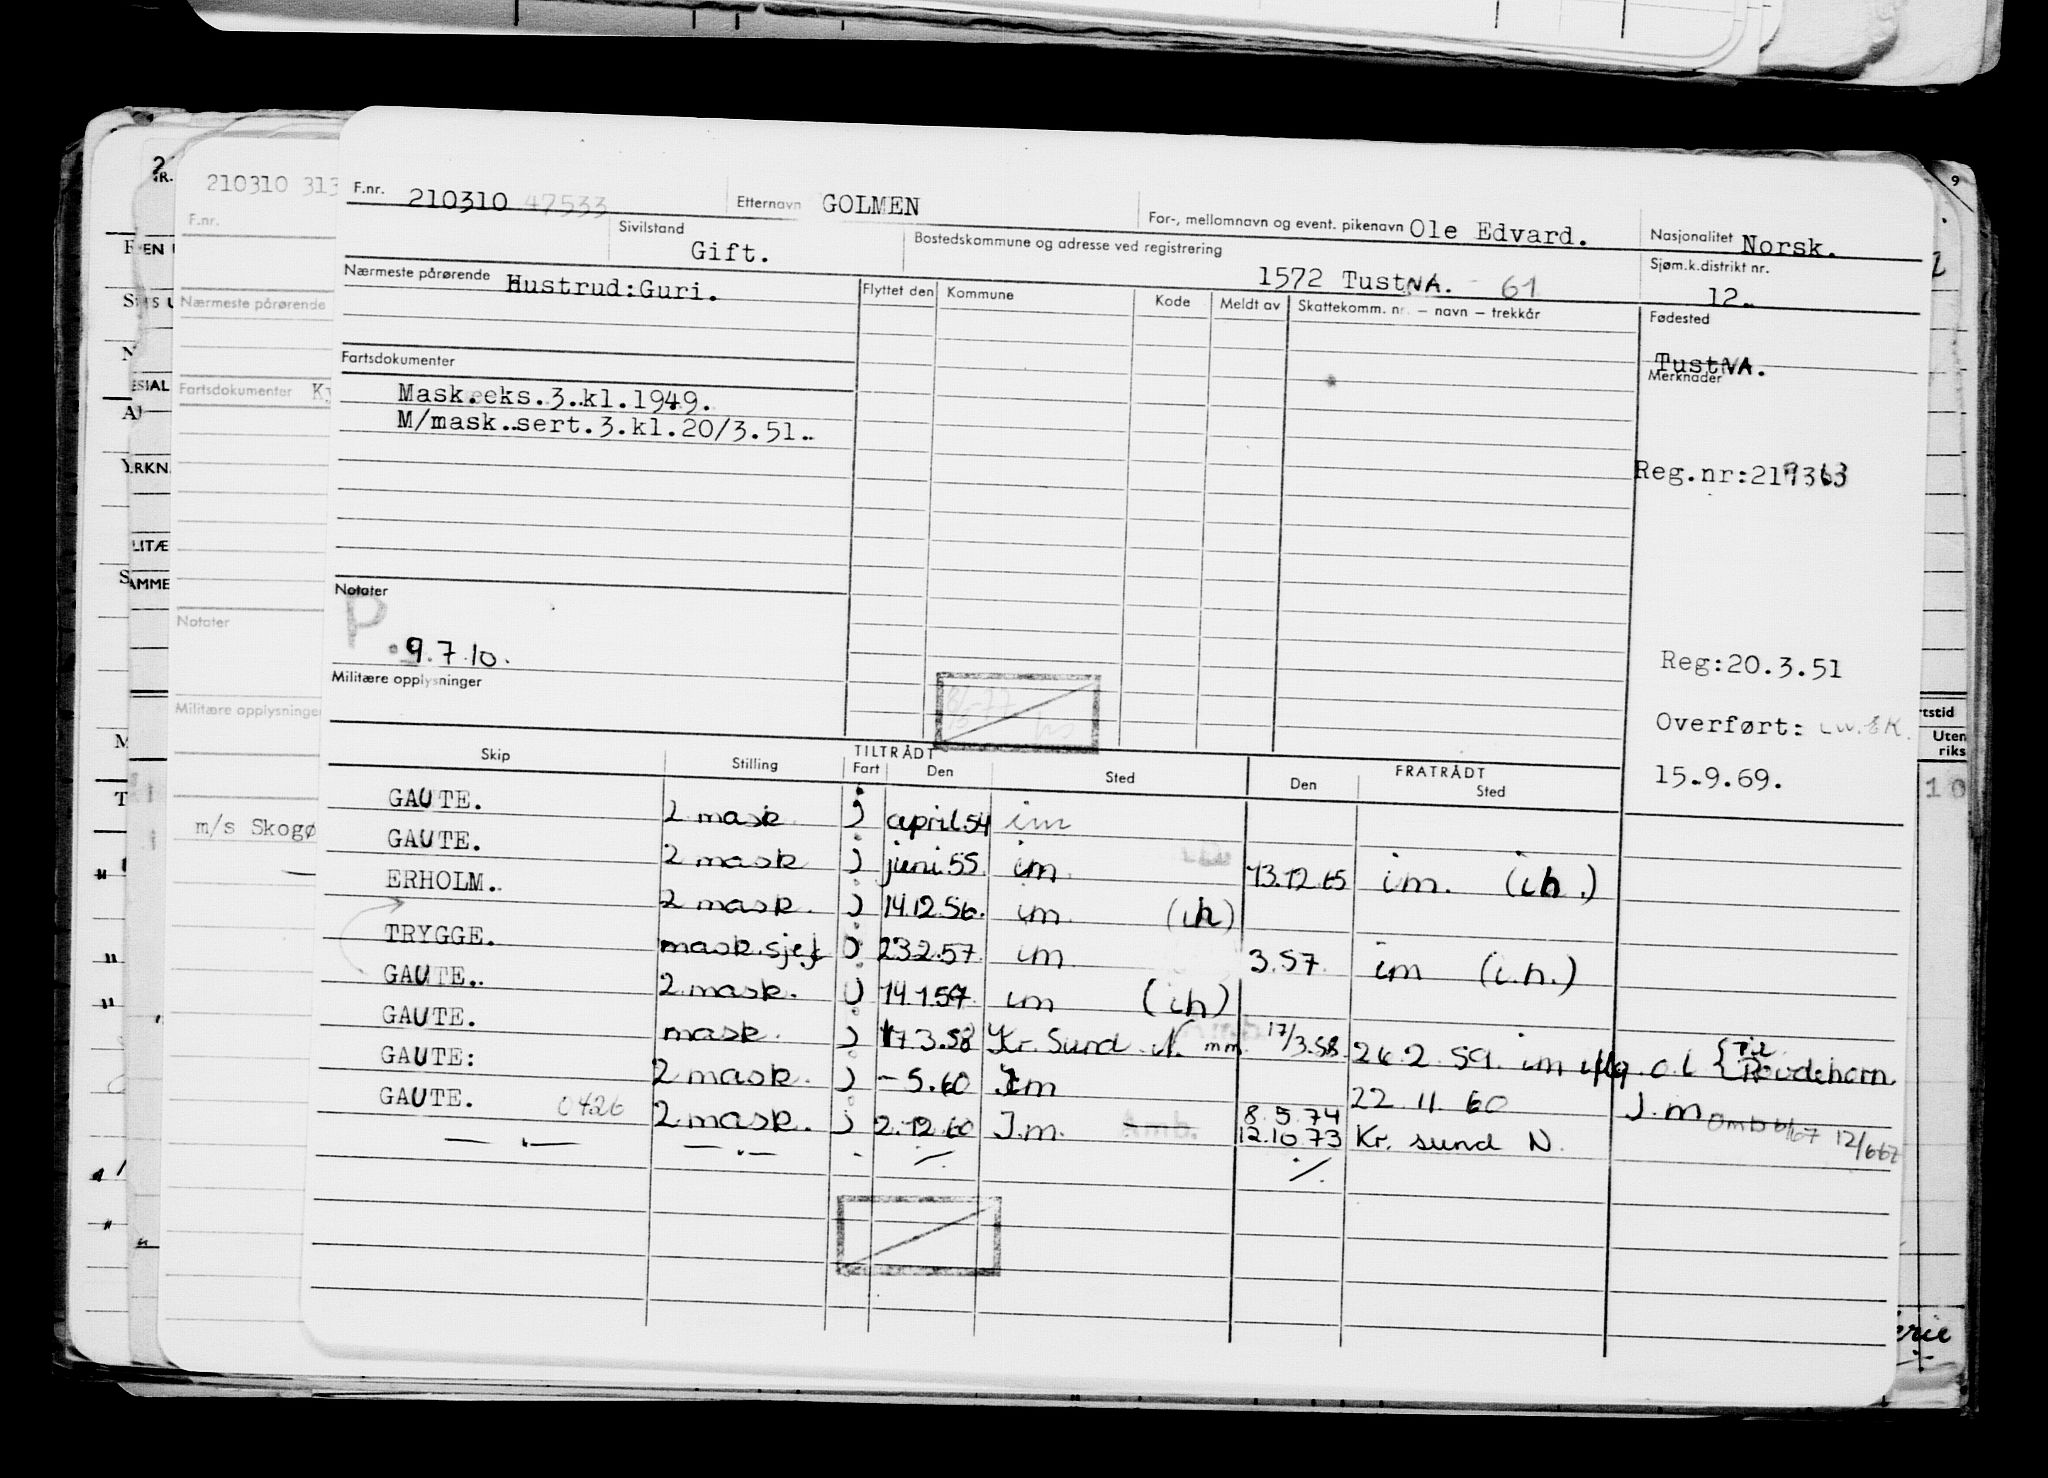 F.nr. 210310 47533 Etternavn GOLMEN For-, mellomnavn og event. pikenavn Ole Edvard. Nasjonalitet Norsk.
Sivilstand Gift. Bostedskommune og adresse ved registrering 1572 TustNA. 61 Sjøm.k.distrikt nr. 12.
Nærmeste pårørende Hustrud:Guri. Flyttet den Kommune Kode Meldt av Skattekomm. nr. – navn – trekkår Fødested
TustNA.
Fartsdokumenter Merknader
Mask.eks.3.kl.1949.
M/mask.sert.3.kl.20/3.51.
Reg.nr:219363
Notater
P
9.7.10.
Reg:20.3.51
Militære opplysninger
Overført:
15.9.69.
Skip Stilling TILTRÅDT Fart Den Sted FRATRÅDT Den Sted
GAUTE. 2 mask j april 54 im
GAUTE. 2 mask j juni 55 im 13.12.65 im. (ih.)
ERHOLM. 2 mask. j 14.12.56. im (ih)
TRYGGE. mask.sjef j 23.2.57. im 3.57. im (i.h.)
GAUTE. 2 mask. j 14.1.57 im (ih)
GAUTE. mask. j 17.3.58 Kr. Sund N. mm. 17/3.58 26.2.59. im
GAUTE: 2 mask. j – 5.60 Im 22 11 60 J.m
GAUTE. 0426 2 mask. j 2.12.60 J.m. Amb. 8.5.74
12.10.73 Kr. sund N. 12/667
210310 313
F.nr.
Nærmeste pårørende
Fartsdokumenter Ky
Notater
Militære opplysninger
m/s Skogø
rtstid
Uten
riks
10